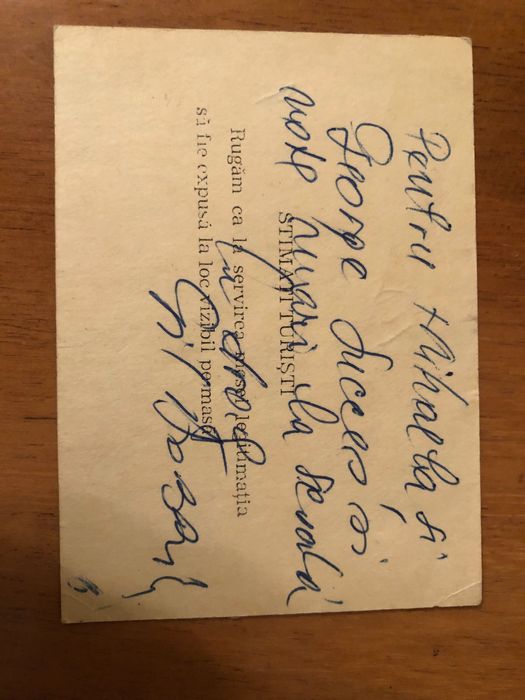 Pentru Mihaela și
George Succes și
note mari la școală
STIMAȚI TURIȘTI
Rugăm ca la servirea mesei legitimația
să fie expusă la loc vizibil pe masă
cu drag